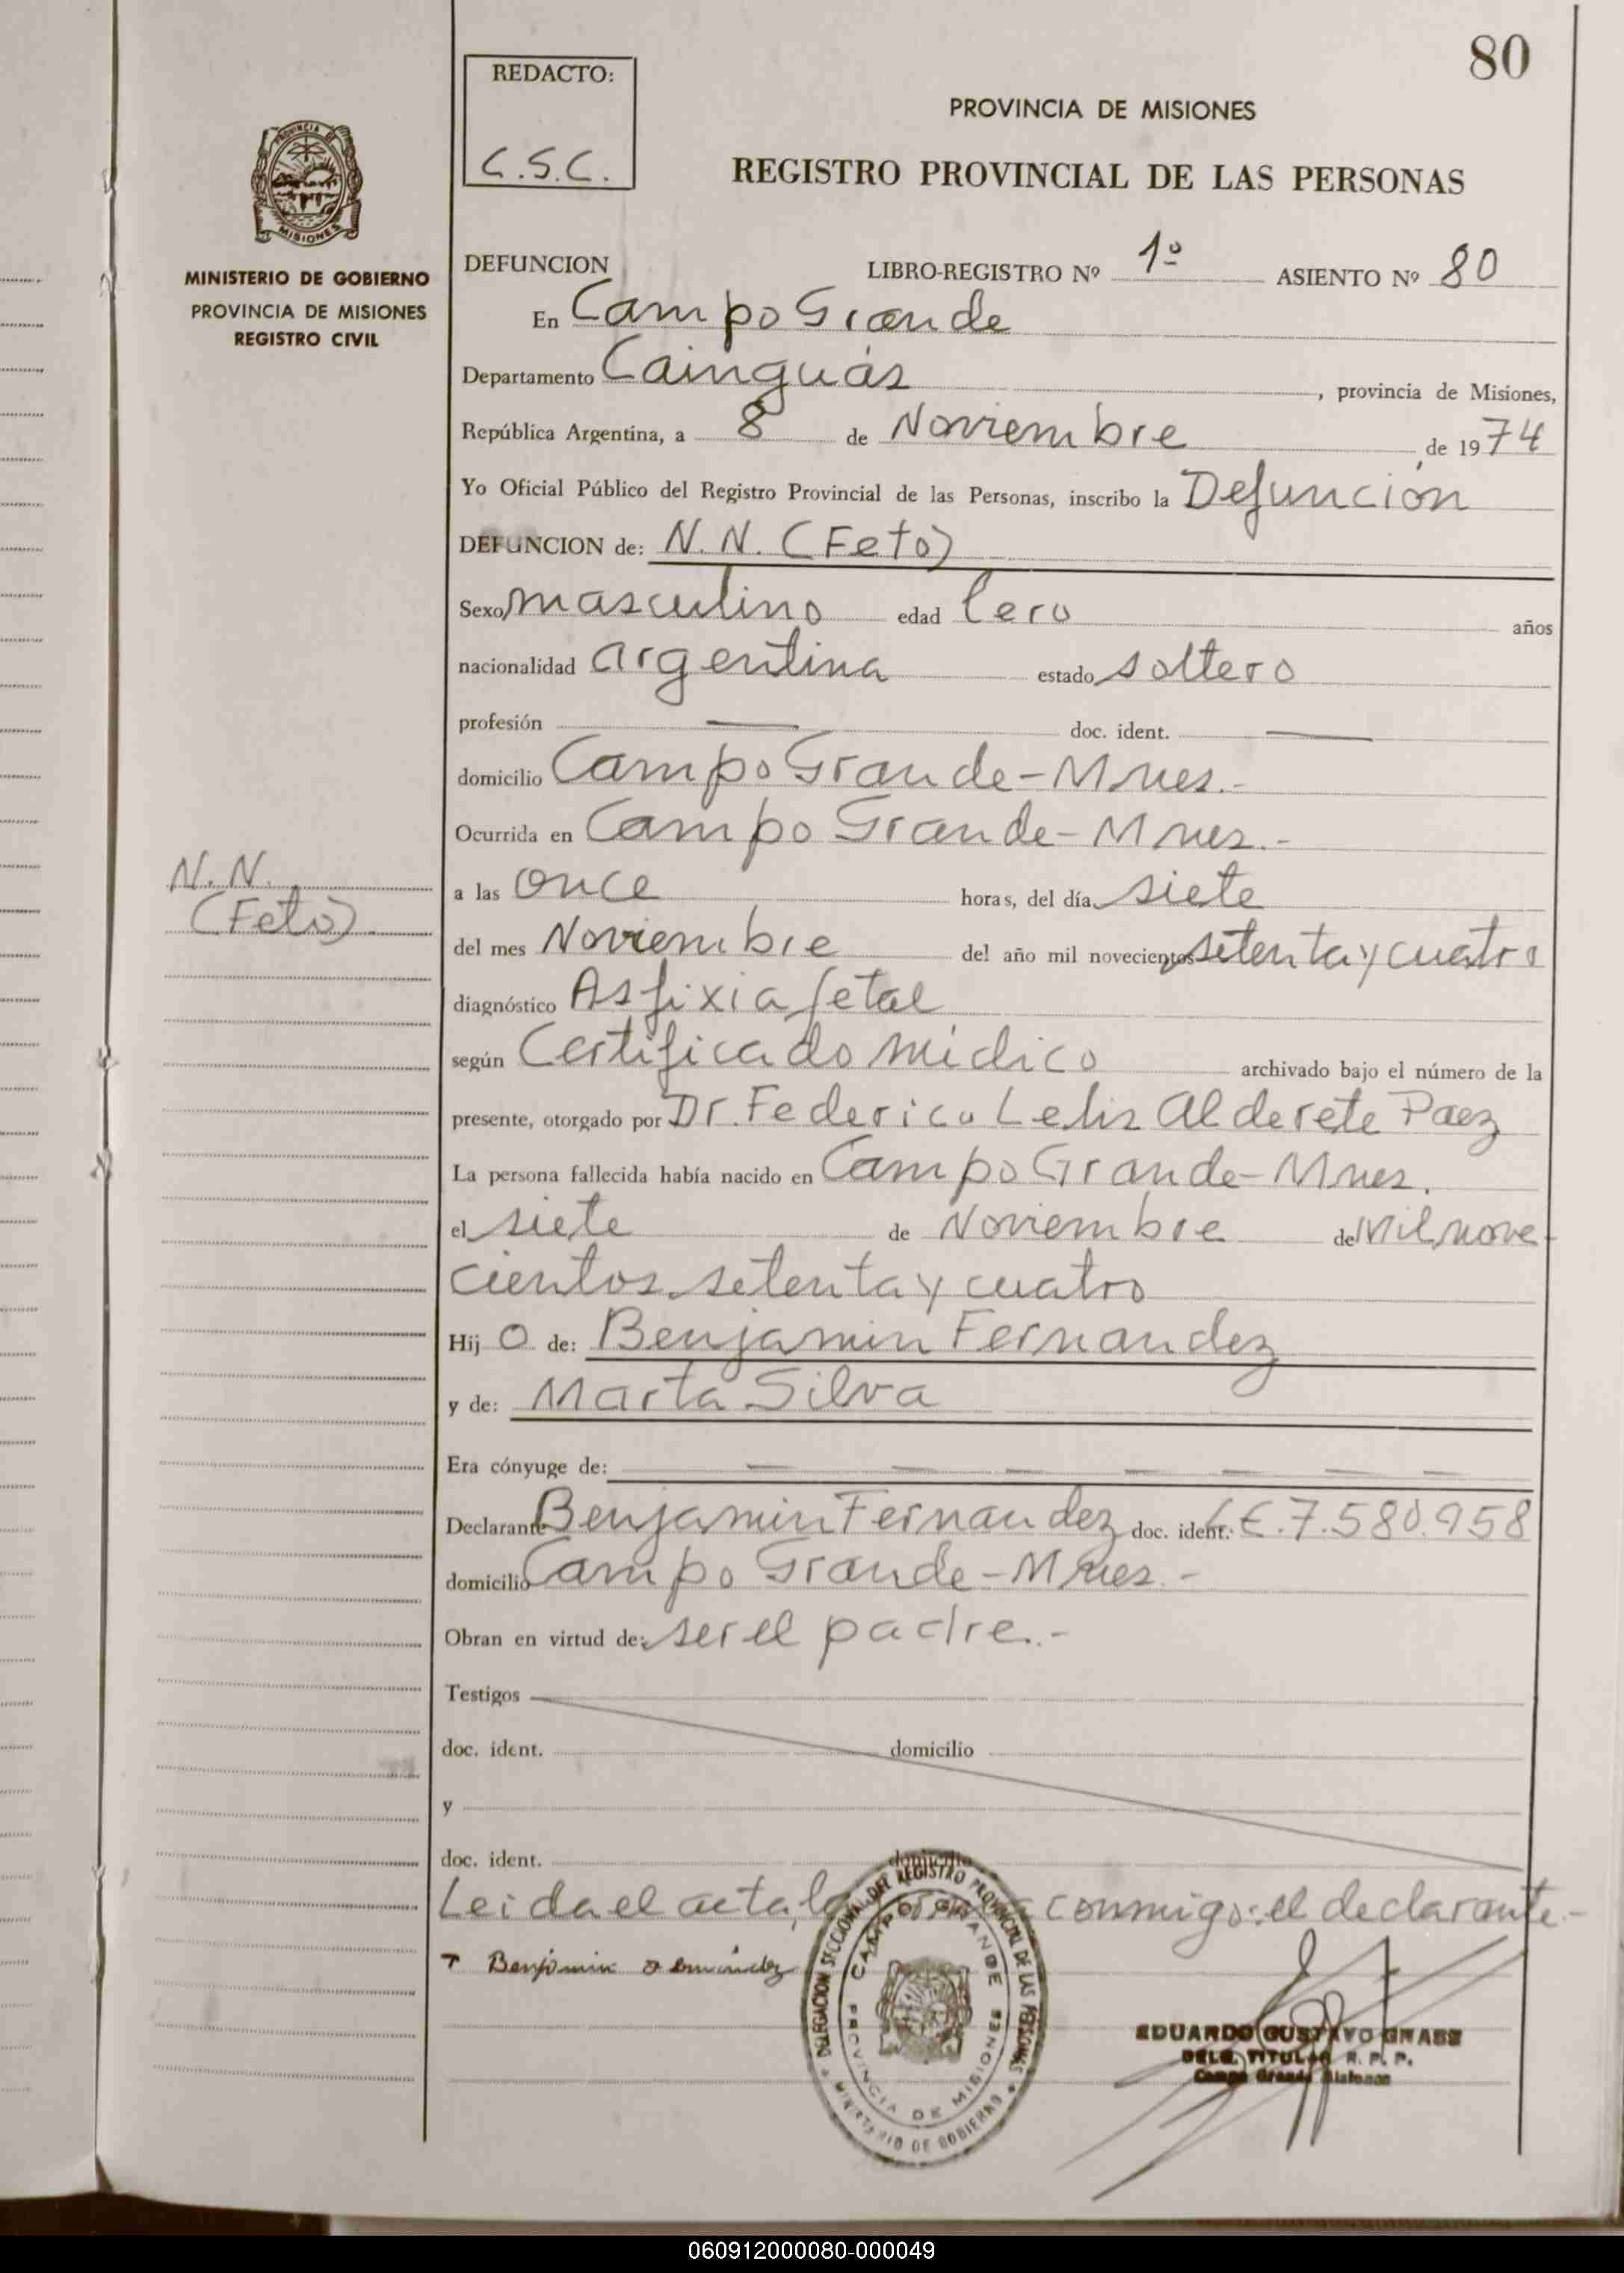 80
REDACTO:
C.S.C.
PROVINCIA DE MISIONES
REGISTRO PROVINCIAL DE LAS PERSONAS
PROVINCIA DE
MISIONES
MINISTERIO DE GOBIERNO
PROVINCIA DE MISIONES
REGISTRO CIVIL
DEFUNCION LIBRO-REGISTRO Nº 1º ASIENTO Nº 80
En Campo Grande
Departamento Cainguás, provincia de Misiones,
República Argentina, a 8 de Noviembre de 1974
Yo Oficial Público del Registro Provincial de las Personas, inscribo la Defunción
DEFUNCION de: N.N. (Feto)
Sexo masculino edad Cero años
nacionalidad argentina estado soltero
profesión — doc. ident. —
domicilio Campo Grande - Mnes.-
Ocurrida en Campo Grande - Mnes.-
N.N.
(Feto)
a las once horas, del día siete
del mes Noviembre del año mil novecientos setenta y cuatro
diagnóstico Asfixia fetal
según Certificado médico archivado bajo el número de la
presente, otorgado por Dr. Federico Lelis Alderete Paez
La persona fallecida había nacido en Campo Grande - Mnes.
el siete de Noviembre de Mil nove-
cientos setenta y cuatro
Hij o de: Benjamin Fernandez
y de: Marta Silva
Era cónyuge de: — — — — — — —
Declarante Benjamin Fernandez doc. ident.: LE. 7.580.958
domicilio Campo Grande - Mnes.-
Obran en virtud de: ser el padre.-
Testigos
doc. ident. domicilio
y
doc. ident. domicilio
Leida el acta, la firma conmigo: el declarante.-
Benjamin Fernández
DELEGACION SECCIONAL DEL REGISTRO PROVINCIAL DE LAS PERSONAS
CAMPO GRANDE
PROVINCIA DE MISIONES
MINISTERIO DE GOBIERNO
EDUARDO GUSTAVO
DELG. TITULAR R. P. P.
Campo Grande Misiones
060912000080-000049